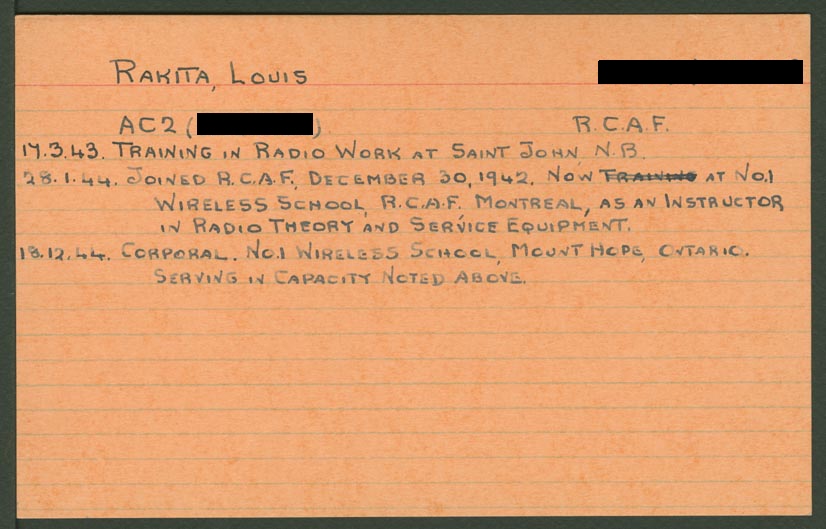 RAKITA, LOUIS
AC2 ( ) R.C.A.F.
17.3.43. TRAINING IN RADIO WORK AT SAINT JOHN, N.B.
28.1.44. JOINED R.C.A.F., DECEMBER 30, 1942. NOW TRAINING AT NO.1
WIRELESS SCHOOL, R.C.A.F. MONTREAL, AS AN INSTRUCTOR
IN RADIO THEORY AND SERVICE EQUIPMENT.
18.12.44. CORPORAL. NO.1 WIRELESS SCHOOL, MOUNT HOPE, ONTARIO.
SERVING IN CAPACITY NOTED ABOVE.